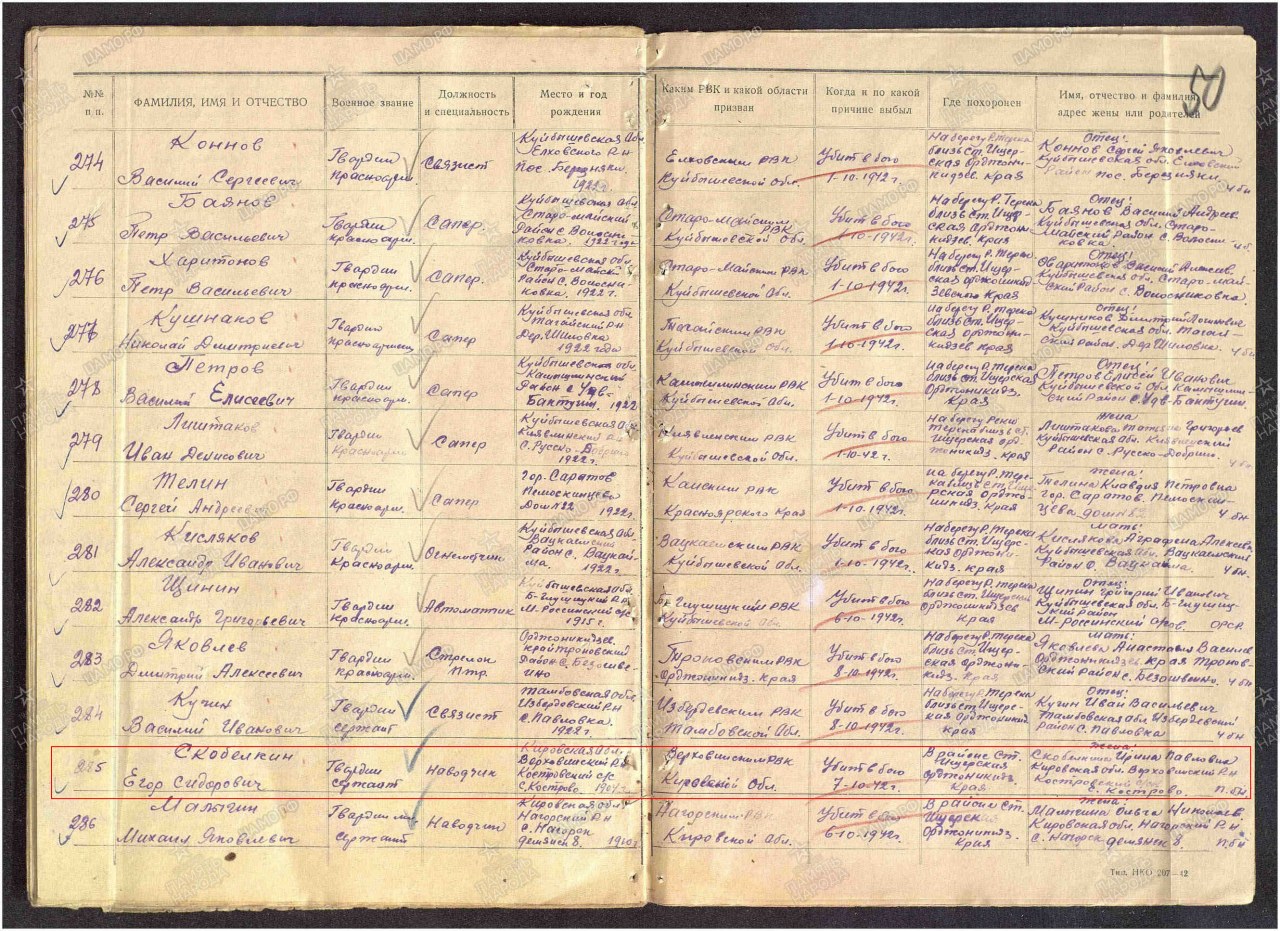 50
№№ п.п. ФАМИЛИЯ, ИМЯ И ОТЧЕСТВО Военное звание Должность и специальность Место и год рождения Каким РВК и какой области призван Когда и по какой причине выбыл Где похоронен Имя, отчество и фамилия, адрес жены или родителей
274 Коннов
Василий Сергеевич
Гвардии
Красноарм.
Связист
Куйбышевская Обл
Елховского Р-н
пос. Берендяки.
1922г.
Елховским РВК
Куйбышевской Обл.
Убит в бою
1-10-1942г.
На берегу р. Терека
близь Ст. Ищер-
ская Орджони-
кидзев. Края
Отец:
Коннов Сергей Яковлевич
Куйбышевская обл. Елховский
Район пос.
4 бн
275 Баянов
Петр Васильевич
Гвардии
красноарм.
Сапер.
Куйбышевская Обл
Старо-майский
Район с. Волосни-
ковка. 1922 г
Старо-Майским
РВК
Куйбышевской Обл.
Убит в бою
1-10-1942г.
На берегу Р. Терека
близь Ст. Ищер-
ская Орджони-
кидзев Края
Отец:
Баянов Василий Андреев.
Куйбышевская обл. Старо-
Майский Район с. Волосни-
ковка.
4 б.
276 Харитонов
Петр Васильевич
Гвардии
Красноарм.
Сапер.
Куйбышевская Обл.
Старо-Майск.
Район с. Волосни-
ковка. 1922г.
Старо-Майским РВК
Куйбышевской Обл.
Убит в бою
1-10-1942г.
На берегу Р. Терека
близь Ст. Ищер-
ская орджоникид
зевского Края
Отец:
Куйбышевская обл. Старо-май-
ский Район с. Волосниковка.
277 Кушнаков
Николай Дмитриевич
Гвардии
Красноармеец
Сапер
Куйбышевская Обл.
Тагайский РН
Дер. Шиловка
1922 года
Тагайским РВК
Куйбышевской Обл.
Убит в бою
1-10-1942г.
на берегу Р. Терека
близь Ст. Ищер-
ская Орджони-
кидзев Края
Отец:
Дмитрий
Куйбышевская обл. Тагай-
ский Район. Дер Шиловка.
4 бн
278 Петров
Василий Елисеевич
Гвардии
Красноарм.
Сапер
Куйбышевская обл
Район с Удв-
Бактугин. 1922
РВК
Куйбышевской Обл.
Убит в бою
1-10-1942г.
на берегу Р. Терека
близь Ст. Ищерская
Орджоникидз.
Края
Отец:
Петров Елисей Иванович
Куйбышевской Обл.
ский Район С. Удв-Бактугин.
279 Лиштаков
Иван Денисович
Гвардии
Красноарм.
Сапер
Куйбышевская Обл
Р Н
С. Русско-
1922г.
РВК
Куйбышевской Обл.
Убит в бою
1-10-42г.
На берегу Реки
Терека близь Ст.
Ищерская Орд-
жоникидз. края
Жена
Лиштакова Татьяна Григорьев
Куйбышевская обл.
Район С. Русско-Добрино.
4 бн.
280 Телин
Сергей Андреевич
Гвардии
Красноарм.
Сапер
гор. Саратов
1922г.
Канским РВК
Красноярского Края
Убит в бою
1-10-1942г.
на берегу Р. Тере-
ка близь Ст. Ище-
рская Орджо-
никидз. Края
Жена:
Телина Клавдия Петровна
гор. Саратов.
4 бн.
281 Кисляков
Александр Иванович
Гвардии
Красноарм.
Огнеметчик
Куйбышевская Обл.
Вацкаемский
Район С. Вацкай-
ма. 1922г.
Вацкаемским РВК
Куйбышевской Обл.
Убит в бою
6-10-1942г.
На берегу Р. Терека
близь Ст. Ищер-
ская Орджони-
кидз. Края
Мать:
Кислякова Аграфена Алексеев.
Куйбышевская Обл. Вацкаемский
Район С. Вацкайма.
4 бн.
282 Щинин
Александр Григорьевич
Гвардии
Красноарм.
Автоматчик
Куйбышевская Обл.
Б-Глушицкий Р.Н
М. Россинский с/с
1915 г.
Б-Глушицким РВК
Куйбышевской Обл.
Убит в бою
6-10-1942г.
На берегу Р. Терека
близь Ст. Ищерская
Орджоникидзев
Края
Отец:
Щинин Григорий Иванович
Куйбышевская обл. Б-Глушиц-
кий Район
М-Россинский
283 Яковлев
Дмитрий Алексеевич
Гвардии
Красноарм.
Стрелок
П.т.р.
Орджоникидзев.
край
Район С.
РВК
Орджоникидз. Края
Убит в бою
8-10-1942г.
На берегу Р. Терека
близь Ст. Ищер-
ская Орджони-
кидз. Края
Мать:
Яковлева Анастасия Василев
Орджоникидзев. края
ский Район с.
4 бн
284 Кучин
Василий Иванович
Гвардии
сержант
Связист
Тамбовская обл.
Избердеевский Р-н
С. Павловка.
1922г.
Избердевским РВК
Тамбовской Обл.
Убит в бою
8-10-1942г.
На берегу Р. Терека
близь Ст. Ищер-
ская Орджони-
кидз. Края
Отец:
Кучин Иван Васильевич
Тамбовская обл. Избердевский
район С. Павловка
4 бн
285 Скобелкин
Егор Сидорович
Гвардии
Сержант
Наводчик
Кировская обл.
Верховинский Р.Н
Костровский с/с
с. Кострово. 1904г.
Верховинским РВК
Кировской Обл.
Убит в бою
7-10-42г.
В районе Ст.
Ищерская
Орджоникидз.
Края
Жена:
Скобелкина Ирина Павловна
Кировская Обл. Верховинский Р.Н
Костровский
с. Кострово.
п. бн
286 Малыгин
Михаил Яковлевич
Гвардии
Сержант
Наводчик
Кировская обл
Нагорский Р-Н
С. Нагорск
1910г
Нагорским РВК
Кировской Обл.
Убит в бою
6-10-1942г.
В районе Ст.
Ищерская
Орджоникидз.
Края
Жена:
Ольга Николаев
Кировская обл. Нагорский Р.Н.
С. Нагорск
п. бн
Тип. НКО 207—42